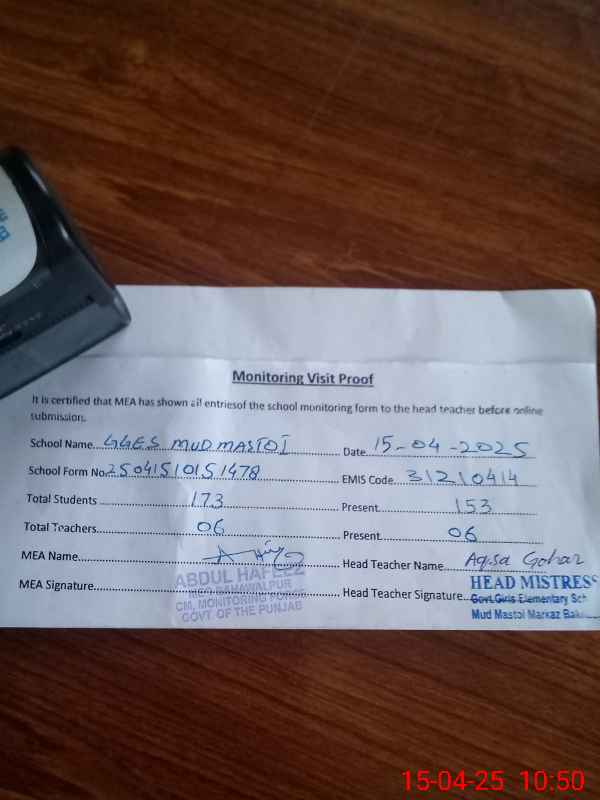 Monitoring Visit Proof
It is certified that MEA has shown all entriesof the school monitoring form to the head teacher before online
submission.
School Name GGES MUD MASTOI Date 15-04-2025
School Form No 25041510151478 EMIS Code 31210414
Total Students 173 Present 153
Total Teachers 06 Present 06
MEA Name Head Teacher Name Aqsa Gohar
MEA Signature Head Teacher Signature
ABDUL HAFEEZ
MEO BAHAWALPUR
CM, MONITORING FORCE
GOVT OF THE PUNJAB
HEAD MISTRESS
Govt.Girls Elementary Sch
Mud Mastoi Markaz
15-04-25 10:50